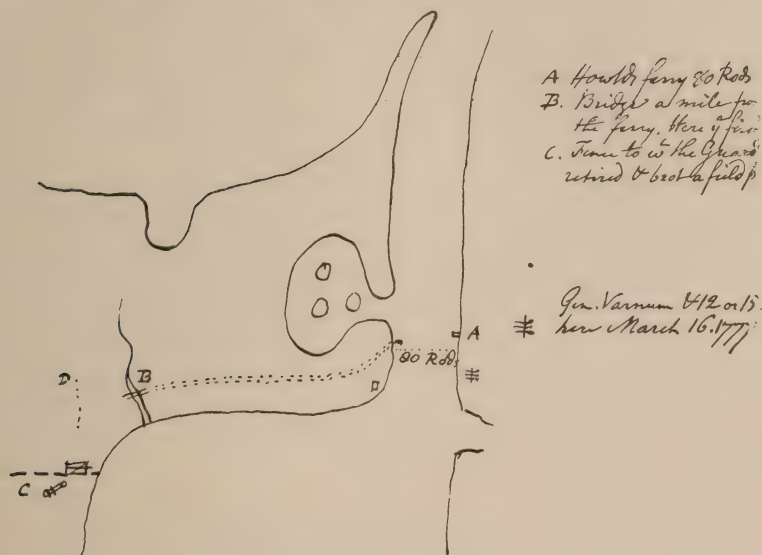 A Howlds ferry 80 Rods
B. Bridge a mile fro
the ferry. Here ye
C. Fence to wc the Guard
retired & brot a field p
Gen. Varnum & 12 or 15.
here March 16. 1777
A
80 Rods
B
D
C